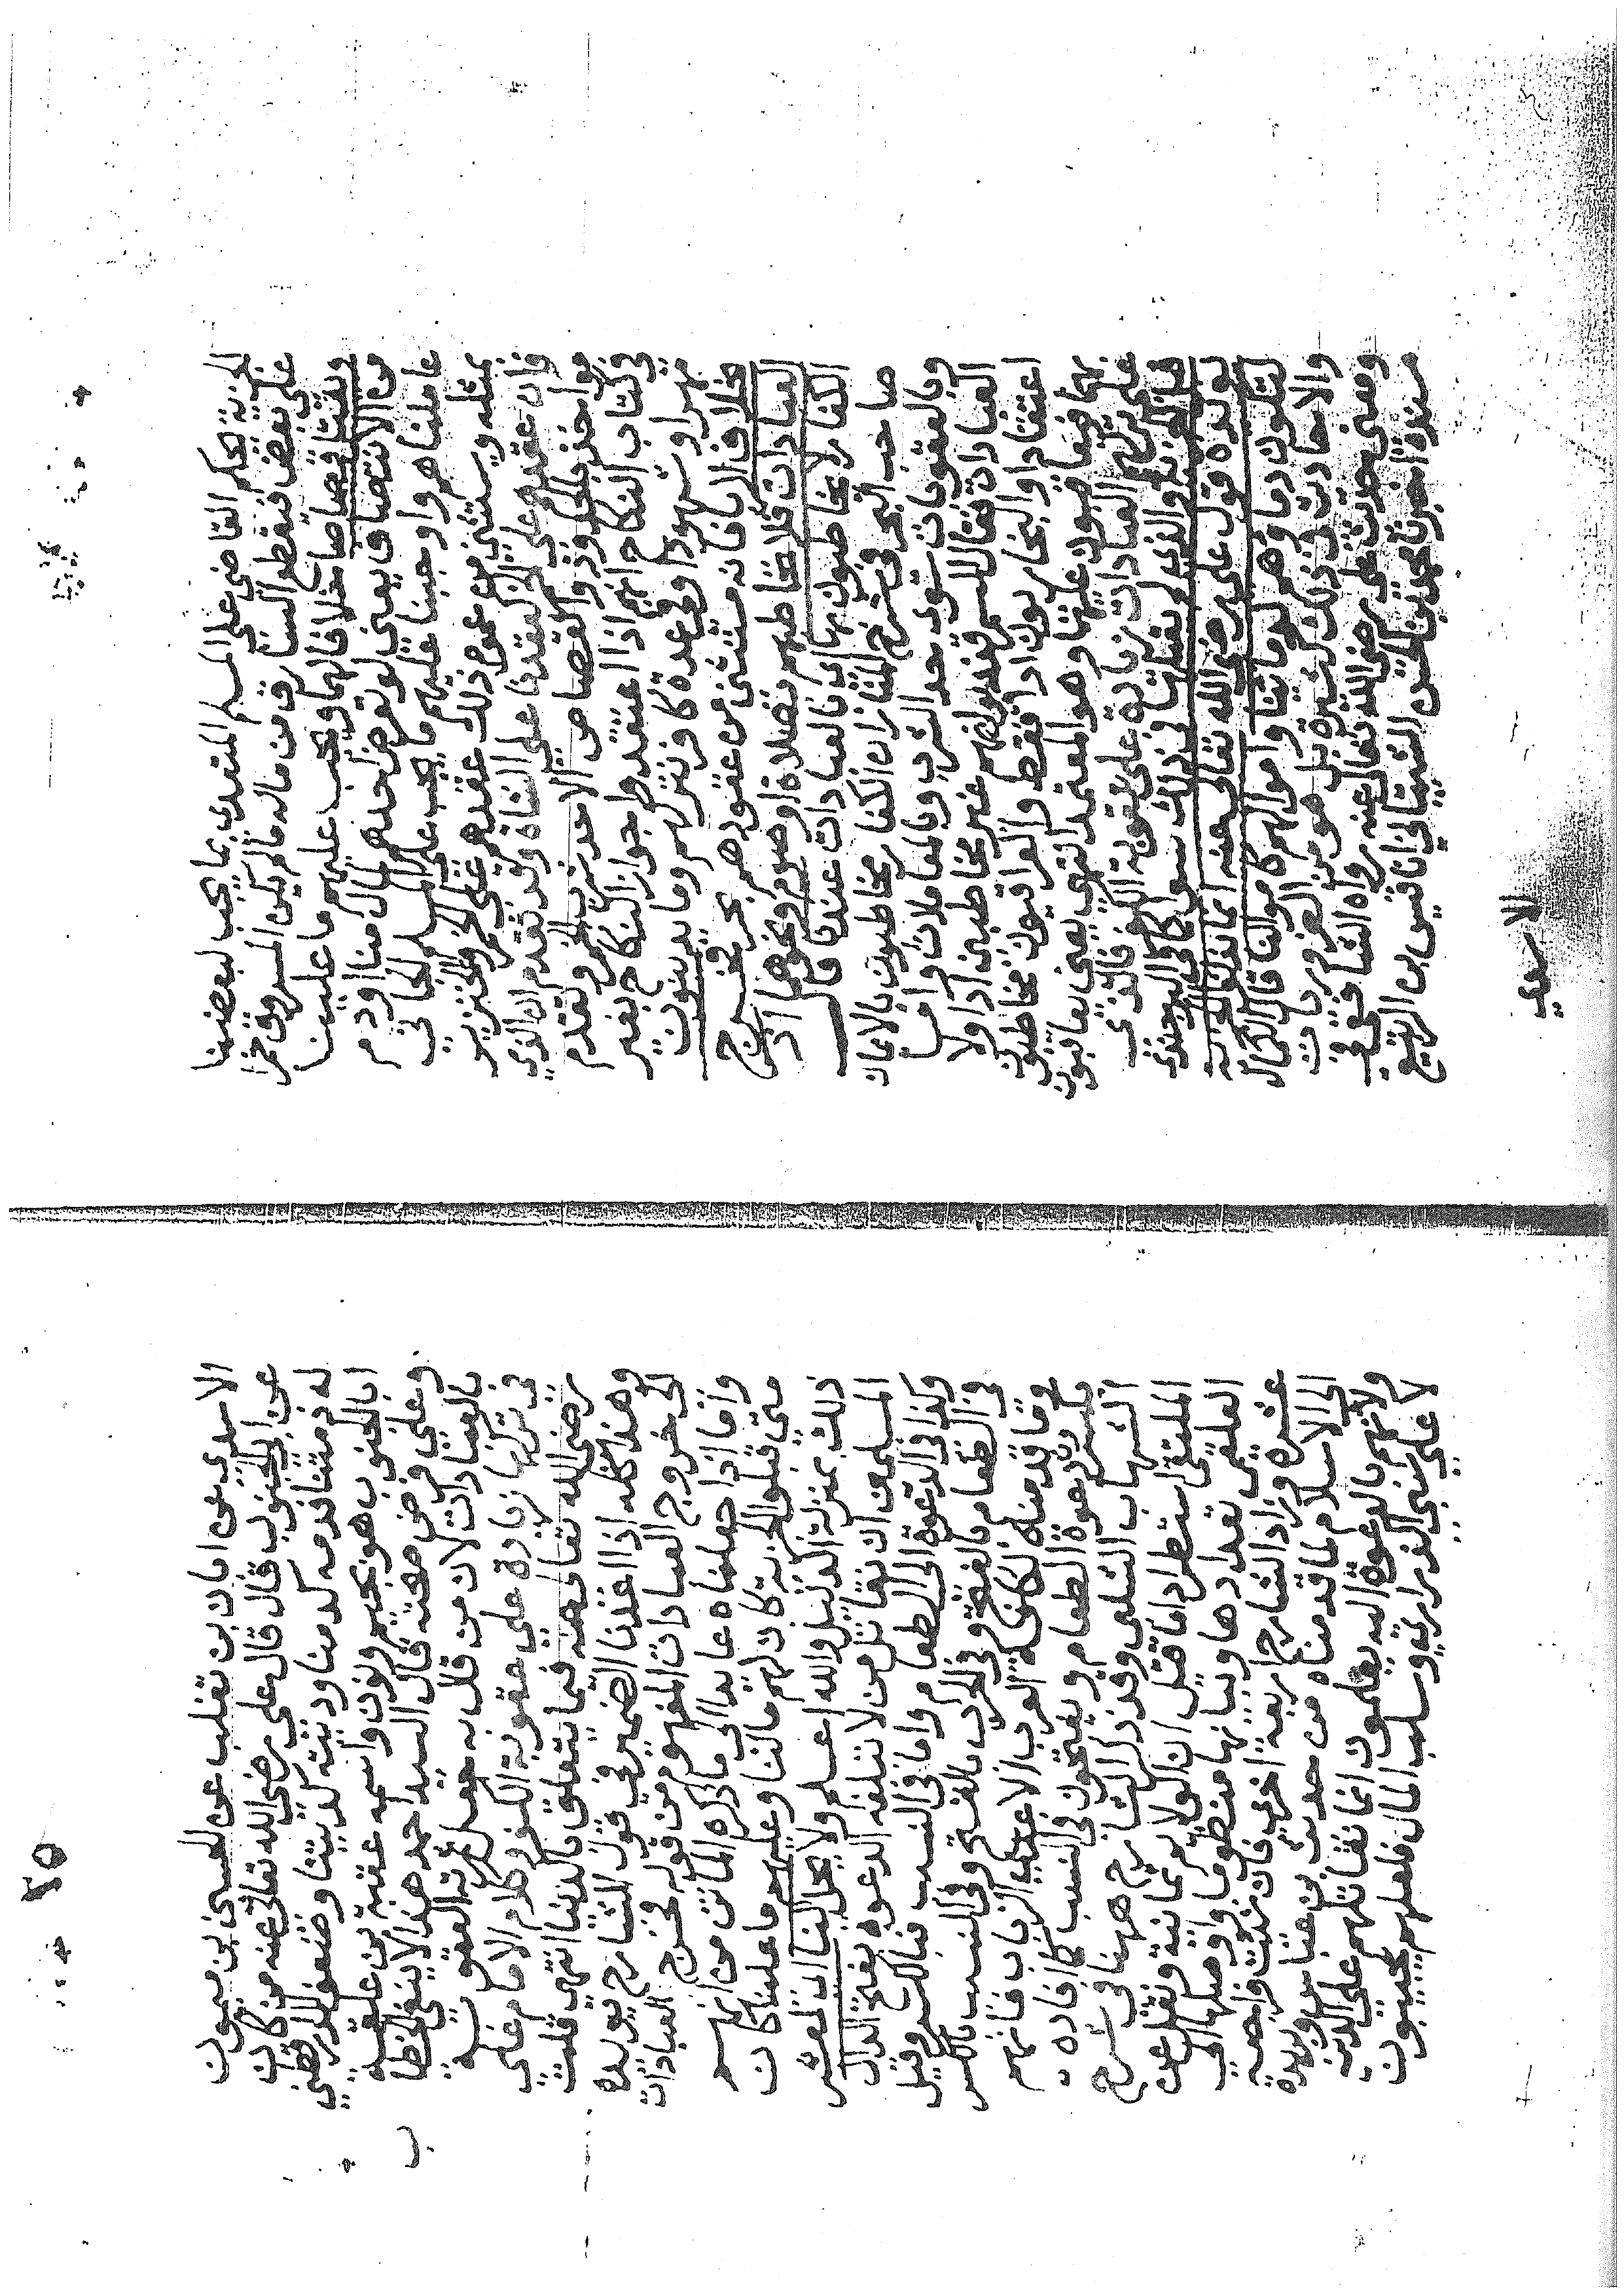 الجزية بحكم القاضي على المسلم المتعدي بما يجب لبعضنا
على بعض فيقطع السارق من ماله ما لم يكن المسروق خمرا
ويقتل قصاصا خلافا لهما ويجب عليهم ما علينا
من الانتصاف يعني لو تعرض احدهم لمال منا او دم
عاملناهم واوجبنا عليهم ما يجب على المسلم لجاني
بمثله ويستثنى من عموم ذلك عقدهم على الخمر والخنزير
فان عقدهم على الخمر كعقدنا على الشاة وقد تقدم ان الذمي
مواخذ بالحدود والقصاص الا حد شرب الخمر وتقدم
في كتاب النكاح انهم اذا اعتقدوا جواز النكاح بغير
مهر او شهود او في عدة كافر نتركهم وما يدينون
بخلاف الربا فانه مستثنى من عقودهم بحر فخرج
العبادات فلا نخاطبهم بصلاة او صوم ونحوهما اذ
الكفار لا يخاطبون بها اي بالعبادات عندنا قال
صاحب البحر في شرح المنار ان الكفار مخاطبون بالايمان
وبالعقوبات سوى حد الشرب وبالمعاملات واما
العبادات فقال السمرقنديون انهم غير مخاطبين اداء ولا
اعتقادا والبخاريون اداء فقط والعراقيون مخاطبون
بهما فيعاقبون عليهما وهو المعتمد انتهى يعني يعاقبون
على ترك العبادات زيادة على عقوبة الكفر فالذي
قبل الجزية والذي لم يقبلها في ذلك سواء كما في
يويده قول علي رضي الله تعالى عنه انما بذلوا الجزية
لتكون دماوهم كدمائنا واموالهم كاموالنا قال الكمال
والاحاديث في ذلك كثيرة بل هو من الضروريات
ومعنى حديث علي رضي الله تعالى عنه رواه الشافعي في
مسنده اخبرنا محمد بن الحسن الشيباني انا قيس بن الربيع
الاسدي
٤٥
الاسدي عن ابان بن تغلب عن الحسن بن ميمون
عن ابي الجنوب قال قال علي رضي الله تعالى عنه من كانت
له ذمتنا فدمه كدمنا وديته كديتنا وضعف الدارقطني
ابا الجنوب هو بجيم ونون واسمه عقبة بن علقمة
وعلى فرض صحته قال السيد احمد هذا لا ينفي الخطا
بالعبادات لان من قال به جعل ثمرته العقوبة
في تركها زيادة على عقوبة الكفر وكلام الامام علي
رضي الله تعالى عنه فيما يتعلق بالدنيا انتهى قلت
وهذا كله اذا اعدنا الضمير في قول الشارح يويده
الى خروج العبادات المفهوم من قوله فخرج العبادات
واما اذا جعلناه عايدا الى ما ذكره الماتن من انهم
متى قبلوا الجزية كان لهم ما لنا وعليهم ما علينا كان
ذلك بمنزلة الدليل والله اعلم ولا يحل لنا
المسلمين ان نقاتل من لا تبلغه الدعوة بفتح الدال
وكذا في الدعوة الى الطعام واما في النسب فبالكسر وقيل
في الطعام بالفتح وفي الحرب بالفتح وفي النسب بالكسر
وما قدمناه لكافة العرب الا عدي الرباب فانهم
يكسرون دعوة الطعام ويفتحون في النسب كما افاده
الشهاب الشلبي وقد ذكر الشارح ههنا في شرح
الملتقى استطرادا ما قيل ان الولايم ثمانية ونقل عن
العلقمي تعدادها وبيانها منظوما واوصلها الى
عشرة وزاد الشارح اربعة اخرى فان شئت فراجعه
الى الاسلام لما قدمناه من حديث بن عباس وبريدة
ولانهم بالدعوة اليه يعلمون انما نقاتلهم على الدين
لا على سبي الذراري وسلب المال فلعلهم يجيبون